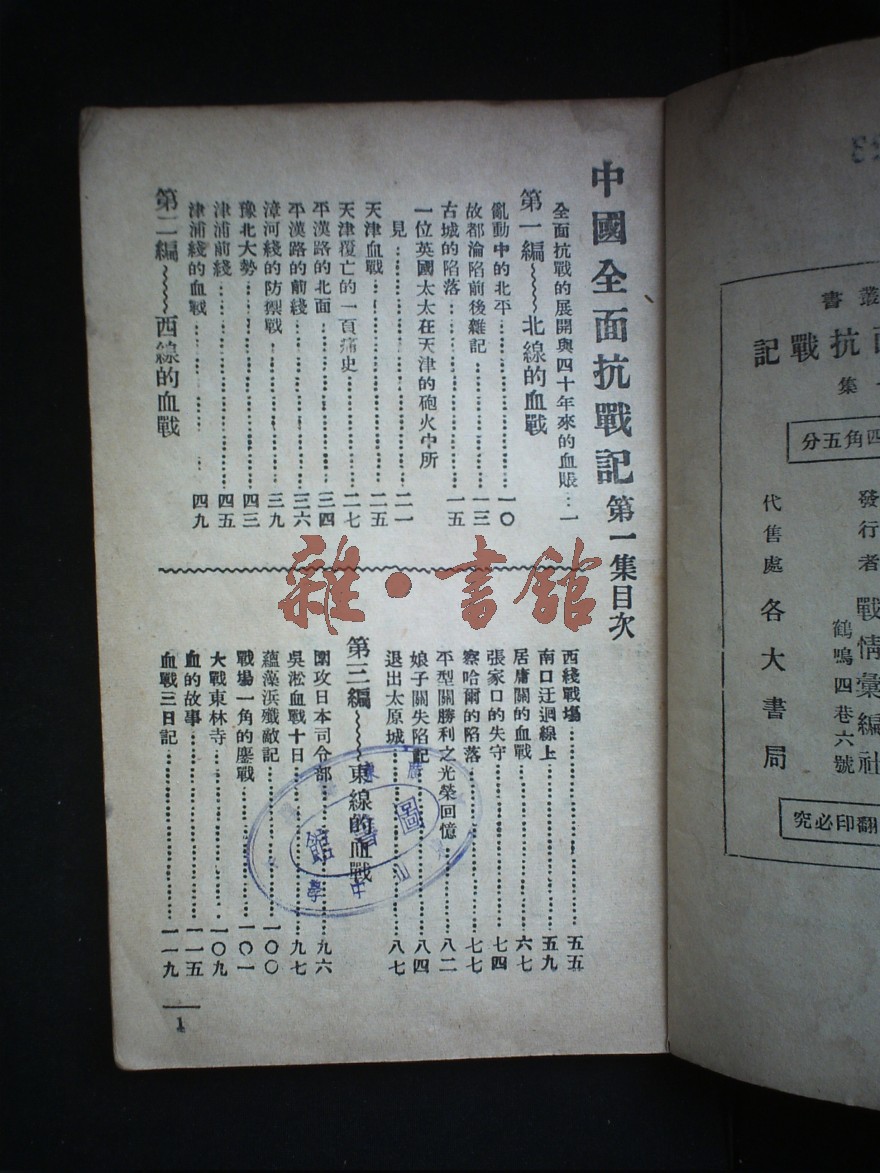 中國全面抗戰記第一集目次
全面抗戰的展開與四十年來的血賬…一
第一編~~~~北線的血戰
亂動中的北平…一〇
故都淪陷前後雜記…一三
古城的陷落…一五
一位英國太太在天津的砲火中所
見…二一
天津血戰…二五
天津覆亡的一頁痛史…二七
平漢路的北面…三四
平漢路的前綫…三六
漳河綫的防禦戰…三九
豫北大勢…四三
津浦前綫…四五
津浦綫的血戰…四九
第二編~~~~西線的血戰
西綫戰場…五五
南口迂迴線上…五九
居庸關的血戰…六七
張家口的失守…七四
察哈爾的陷落…七七
平型關勝利之光榮回憶…八二
娘子關失陷記…八四
退出太原城…八七
第三編~~~~東線的血戰
圍攻日本司令部…九六
吳淞血戰十日…九七
蘊藻浜殲敵記…一〇〇
戰場一角的鏖戰…一〇一
大戰東林寺…一〇九
血的故事…一一五
血戰三日記…一一九
1
雜·書館
圖書館
中山
學
叢書
面抗戰記
集
四角五分
發行者
戰情彙編社
鶴鳴四巷六號
代售處
各大書局
翻印必究